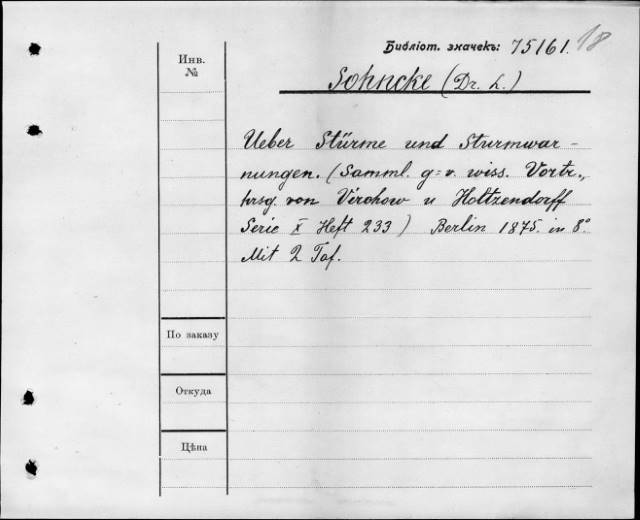 Библіот. значекъ: 75161. 18
Инв.
№
Sohncke (Dr. L.)
Ueber Stürme und Sturmwar-
nungen. (Samml. g=v. wiss. Vortr.,
hrsg. von Virchow u Holtzendorff
Serie X Heft 233) Berlin 1875. in 8°
Mit 2 Taf.
По заказу
Откуда
Цѣна